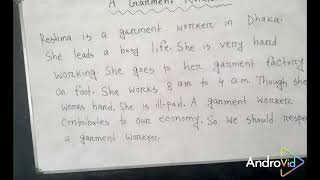 A Garment Worker
Reshma is a garment worker in Dhaka.
She leads a busy life. She is very hard
working. She goes to her garment factory
on foot. She works 8 am to 4 a.m. Though she
works hard. She is ill-paid. A garment worker
contributes to our economy. So we should respe
a garment worker.
AndroVid